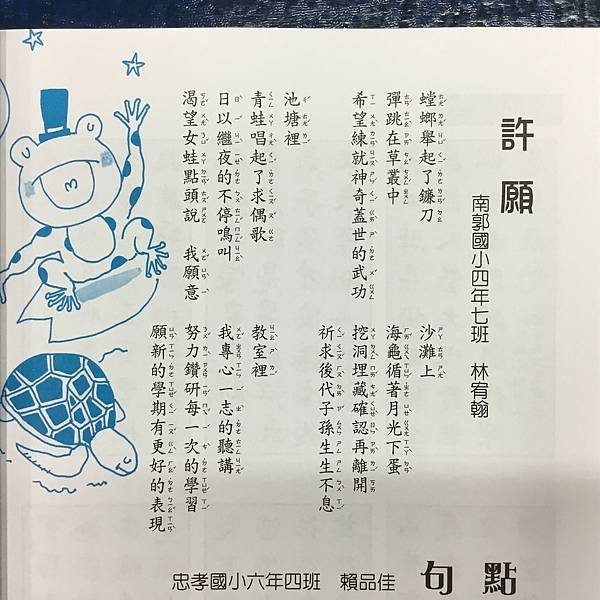 許願
南郭國小四年七班　林宥翰
螳螂舉起了鐮刀
彈跳在草叢中
希望練就神奇蓋世的武功
池塘裡
青蛙唱起了求偶歌
日以繼夜的不停鳴叫
渴望女蛙點頭說　我願意
沙灘上
海龜循著月光下蛋
挖洞埋藏確認再離開
祈求後代子孫生生不息
教室裡
我專心一志的聽講
努力鑽研每一次的學習
願新的學期有更好的表現
句點
忠孝國小六年四班　賴品佳